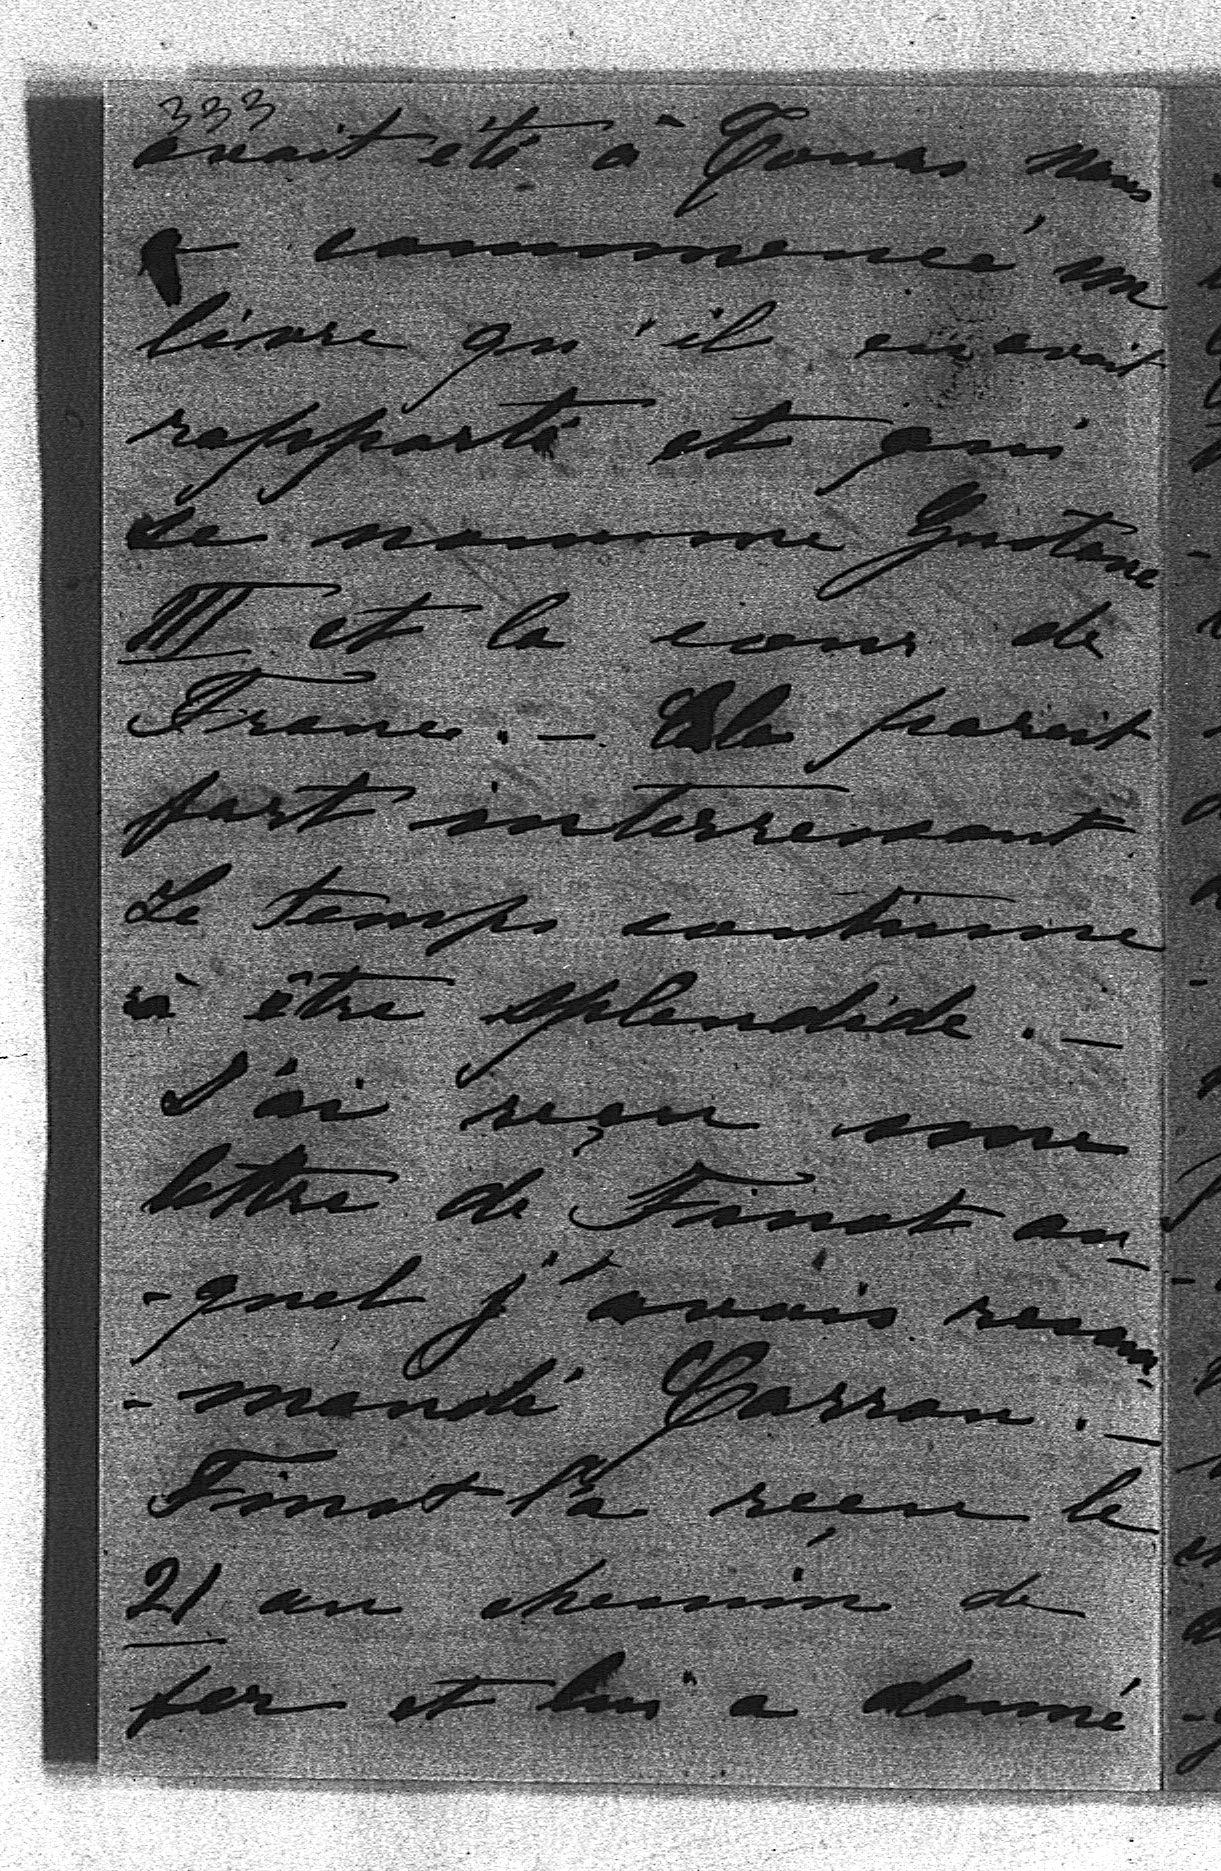 333
avait été à Tours nous
a commencé un
livre qu'il en avait
rapporté et qui
se nomme Gustave
III et la cour de
France. – Cela parait
fort interressant
Le temps continue
à être splendide. –
J'ai reçu une
lettre de Finot au-
-quel j'avais recom-
-mandé Carrau. –
Finot l'a reçu le
21 au chemin de
fer et lui a donné